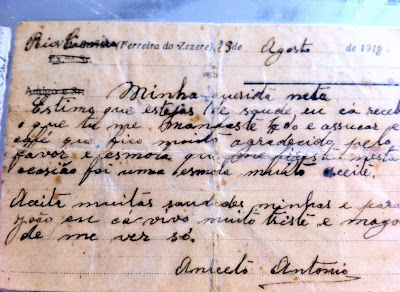 Rio (Ferreira do Zezere), 23 de Agosto de 1918.
Ex.mo Sr.
Amigo e Sr.
Minha querida neta
Estimo que estejas de saude eu cá recebi
o que tu me mandaste e assucar e
café que fico muito agradecido pelo
favor e esmola que me fizeste nesta
ocasião foi uma esmola muito aceite.
Aceita muitas saudades minhas e para
João eu cá vivo muito triste e magoado
de me ver só.
Aniceto Antonio